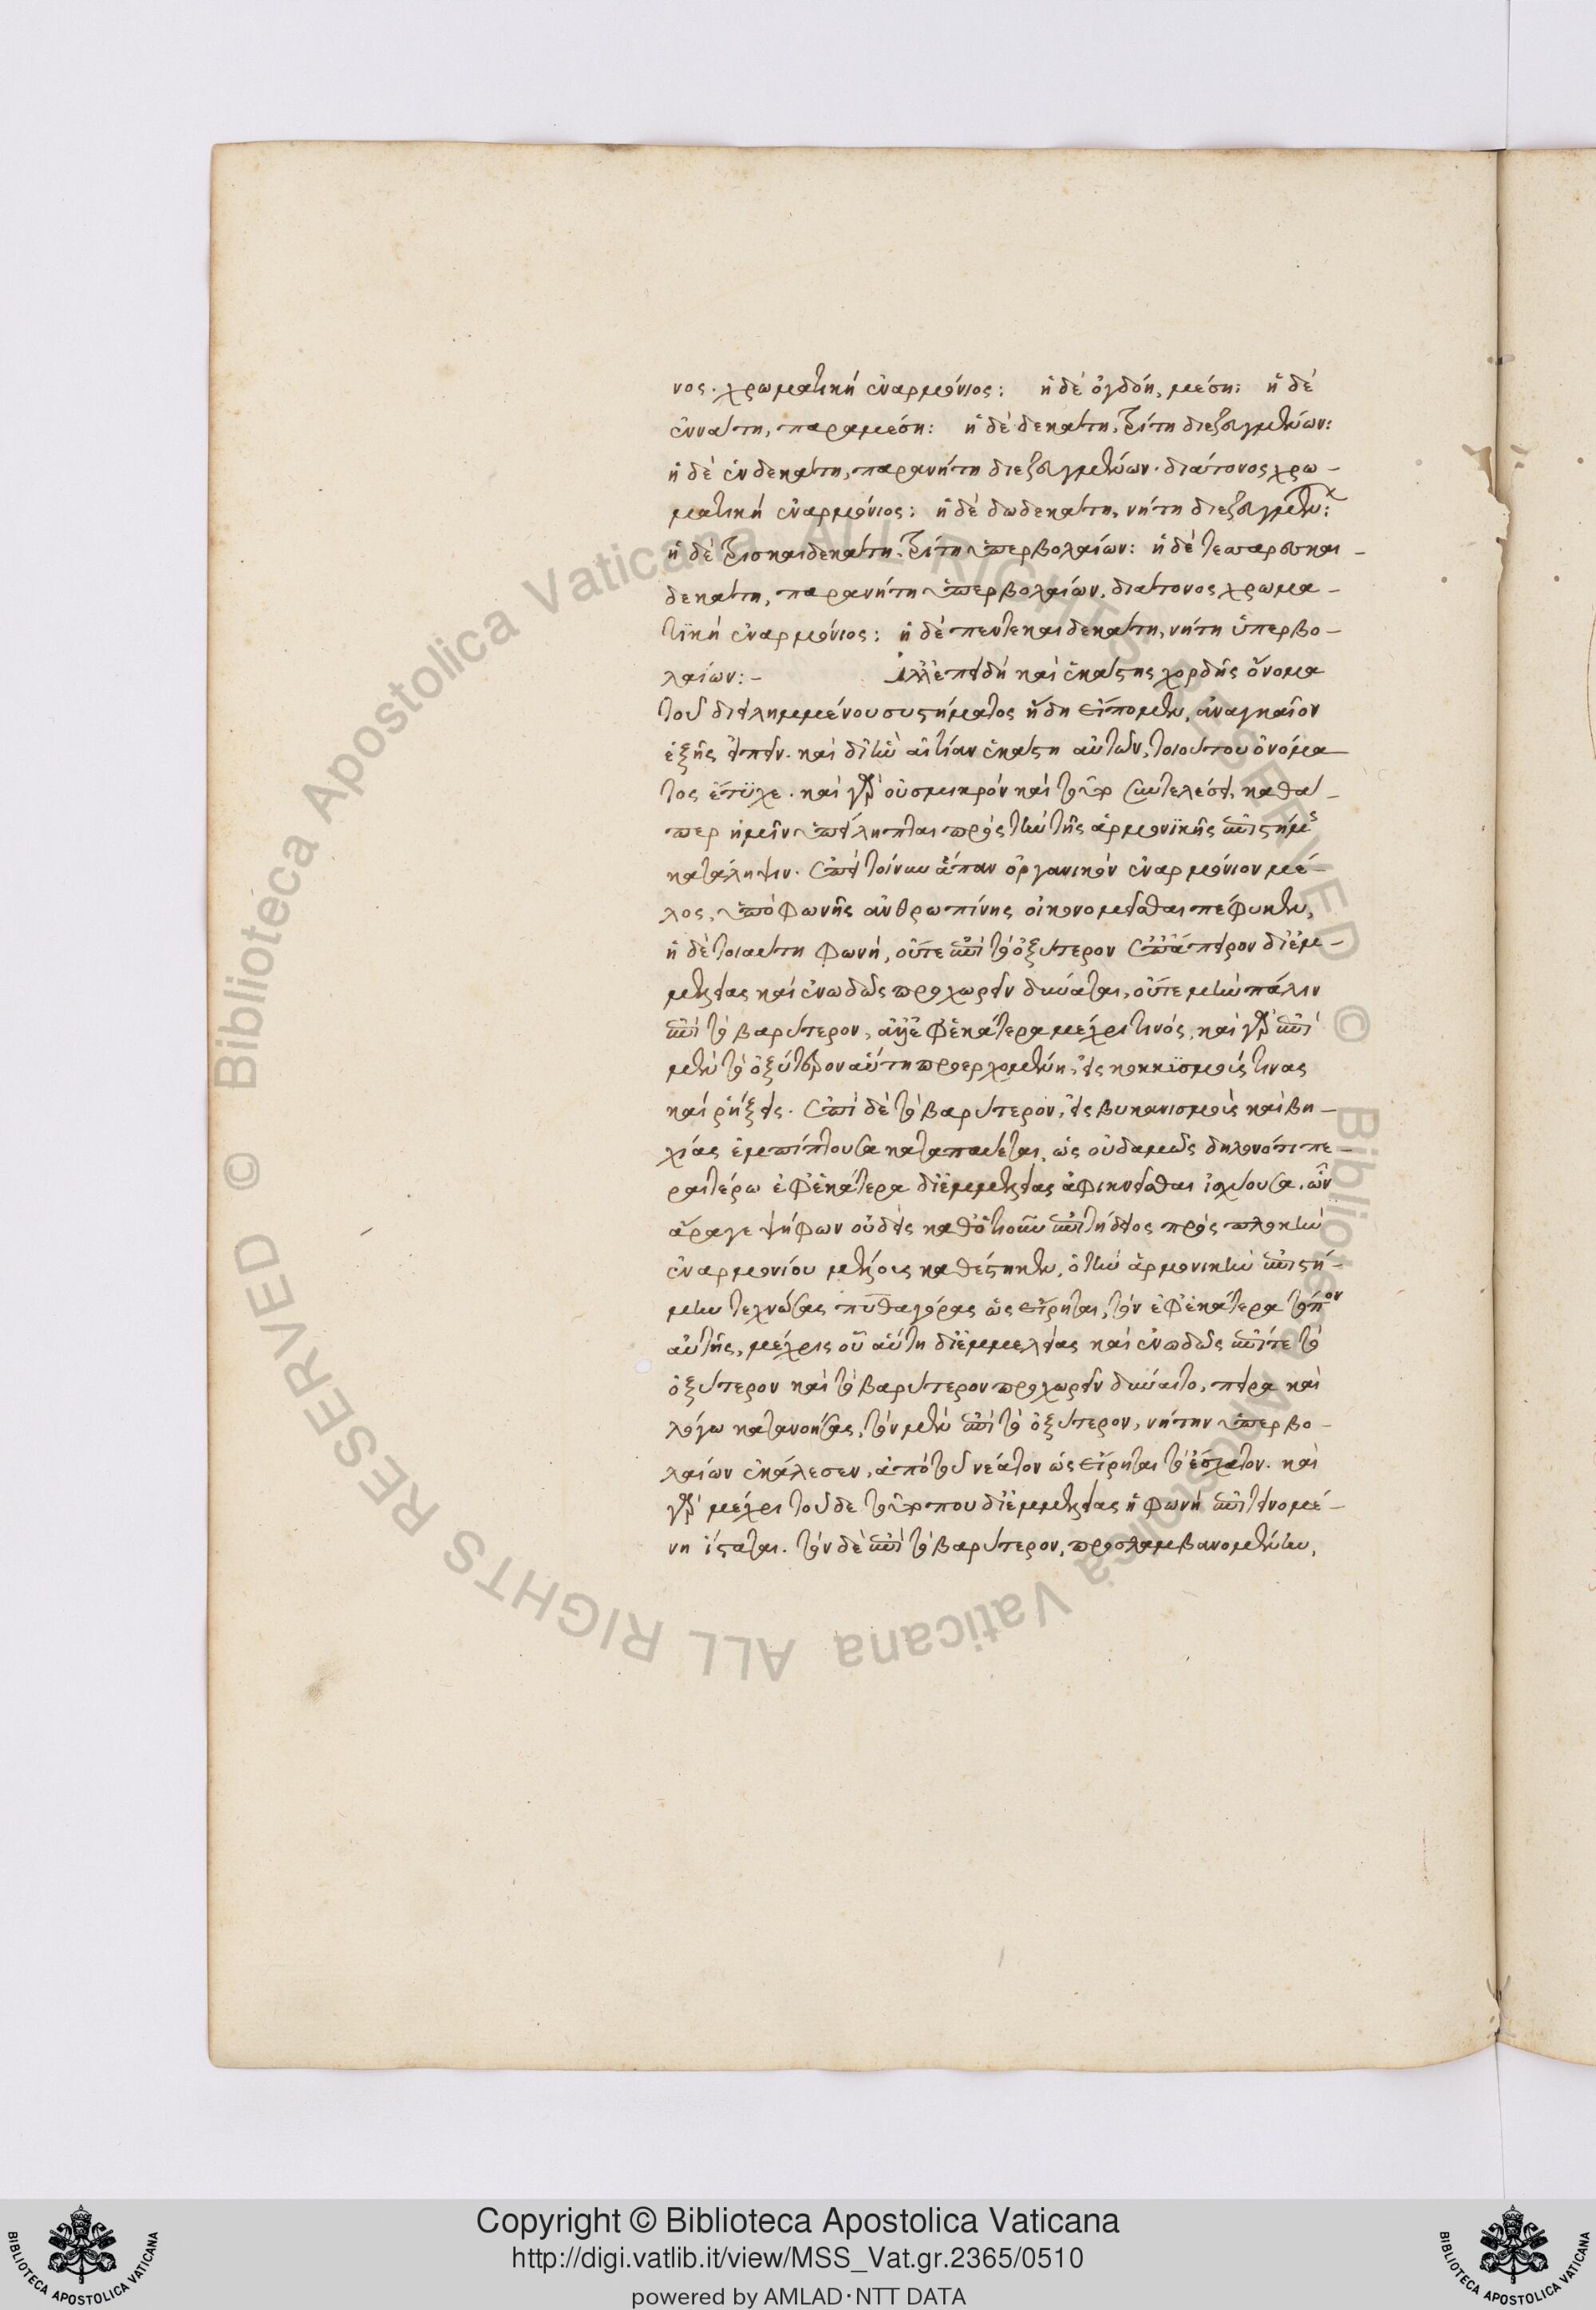 νος. χρωματική ἐναρμόνιος: ἡ δὲ ὀγδόη, μέση: ἡ δὲ
ἐννάτη, παραμέση: ἡ δὲ δεκάτη, τρίτη διεζευγμένων:
ἡ δὲ ἑνδεκάτη, παρανήτη διεζευγμένων. διάτονος χρω-
ματική ἐναρμόνιος: ἡ δὲ δωδεκάτη, νήτη διεζευγμένων:
ἡ δὲ τρισκαιδεκάτη, τρίτη ὑπερβολαίων: ἡ δὲ τεσσαρεσκαι-
δεκάτη, παρανήτη ὑπερβολαίων, διάτονος χρωμα-
τϊκή ἐναρμόνιος: ἡ δὲ πεντεκαιδεκάτη, νήτη ὑπερβο-
λαίων:- Ἀλλ' ἐπειδὴ καὶ ἑκάστης χορδῆς ὄνομα
τοῦ διειλημμένου συστήματος ἤδη εἴπομεν, ἀναγκαῖον
ἑξῆς εἰπεῖν. καὶ δι' ἣν αἰτίαν ἑκάστη αὐτῶν, τοιούτου ὀνόμα-
τος ἔτυχε. καὶ γὰρ οὐ σμικρόν καὶ τοῦτο συντελέσει, καθά-
περ ἡμῖν ὑπείληπται πρὸς τὴν τῆς ἁρμονϊκῆς ἐπιστήμης
κατάληψιν. ἐπεὶ τοίνυν ἅπαν ὀργανικὸν ἐναρμόνιον μέ-
λος, ὑπὸ φωνῆς ἀνθρωπίνης οἰκονομεῖσθαι πέφυκεν,
ἡ δὲ τοιαύτη φωνή, οὔτε ἐπὶ τὸ ὀξύτερον ἐπ' ἄπειρον δι' ἐμ-
μελείας καὶ ἐνωδῶς προχωρεῖν δύναται, οὔτε μὴν πάλιν
ἐπὶ τὸ βαρύτερον, ἀλλ' ἐφ' ἑκάτερα μέχρι τινός, καὶ γὰρ ἐπὶ
μὲν τὸ ὀξύτερον αὕτη προερχομένη, εἰς κοκκϊσμούς τινας
καὶ ῥήξεις. ἐπὶ δὲ τὸ βαρύτερον, εἰς βυκανισμοὺς καὶ βη-
χίας ἐμπίπτουσα καταπαύεται, ὡς οὐδαμῶς δηλονότι πε-
ραιτέρω ἐφ' ἑκάτερα δι' ἐμμελείας ἀφικνεῖσθαι ἰσχύουσα. ὧν
ἄραγε ψήφων οὐδεὶς καθότιοῦν ἐπιτήδειος πρὸς πλοκὴν
ἐναρμονίου μέλους καθέστηκεν, ὁ τὴν ἁρμονικὴν ἐπιστή-
μην τεχνώσας πυθαγόρας ὡς εἴρηται, τὸν ἐφ' ἑκάτερα τόπον
αὐτῆς, μέχρις οὗ αὕτη δι' ἐμμελείας καὶ ἐνωδῶς ἐπί τε τὸ
ὀξύτερον καὶ τὸ βαρύτερον προχωρεῖν δύναιτο, πείρα καὶ
λόγω κατανοήσας, τὸν μὲν ἐπὶ τὸ ὀξύτερον, νήτην ὑπερβο-
λαίων ἐκάλεσεν, ἀπὸ τοῦ νέατον ὡς εἴρηται τὸ ἔσχατον. καὶ
γὰρ μέχρι τοῦδε τοῦ τόπου δι' ἐμμελείας ἡ φωνὴ ἐπιτεινομέ-
νη ἵσταται. τὸν δὲ ἐπὶ τὸ βαρύτερον, προσλαμβανομένην,
Copyright © Biblioteca Apostolica Vaticana
http://digi.vatlib.it/view/MSS_Vat.gr.2365/0510
powered by AMLAD·NTT DATA
BIBLIOTECA APOSTOLICA VATICANA
BIBLIOTECA APOSTOLICA VATICANA
© Biblioteca Apostolica Vaticana ALL RIGHTS RESERVED
© Biblioteca Apostolica Vaticana ALL RIGHTS RESERVED